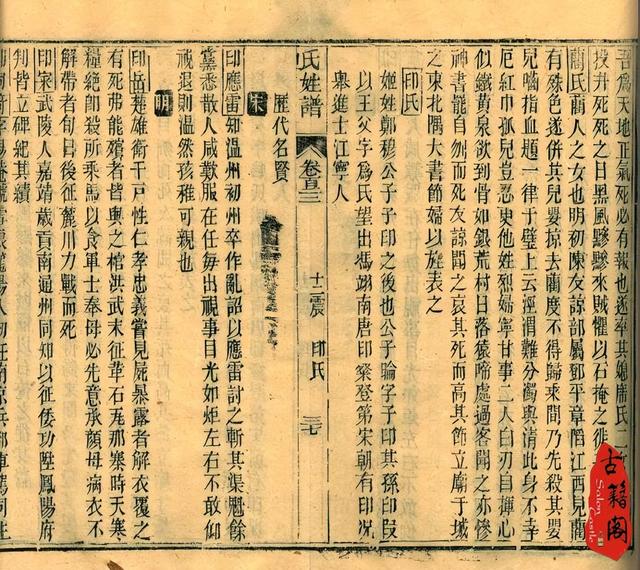 吾爲天地正氣死必有報也遂率其娘席氏一
投井死死之日黑風黪黪來賊懼以石掩之徙
藺氏商人之女也明初陳友諒部屬鄧平章陷江西見藺
有殊色遂併其兒嬰掠去藺度不得歸來間乃先殺其嬰
兒嚙指血題一律于壁上云涇渭難分濁與清此身不幸
厄紅巾孤兒豈忍更他姓烈婦寧甘事二人白刃自揮心
似鐵黃泉欲到骨如銀荒村日落猿啼處過客聞之亦慘
神書罷自刎而死友諒聞之哀其死而高其飾立廟于城
之東北隅大書節婦以旌表之
印氏
姬姓鄭穆公子子印之後也公子睔字子印其孫印段
以王父字爲氏望出馮翊南唐印粲登第宋朝有印況
舉進士江寧人
氏姓譜
卷三
十二震
印氏
三七
歷代名賢
宋
印應雷知溫州初州卒作亂詔以應雷討之斬其渠魁餘
黨悉散人咸歎服在任每出視事目光如炬左右不敢仰
視退則溫然孩稚可親也
明
印岳楚雄衛千戶性仁孝忠義嘗見屍暴露者解衣覆之
有死弗能殯者皆與之棺洪武末征革石馬那寨時天寒
糧絕卽殺所乘馬以食軍士奉母必先意承顏母病衣不
解帶者旬日後征麓川力戰而死
印寀武陵人嘉靖歲貢南通州同知以征倭功陞鳳陽府
判皆立碑紀其績
古籍阁
Salon Castle